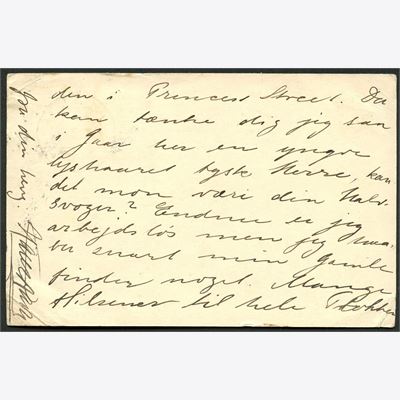 den i Princess Street. Du
kan tænke dig jeg saa
i Gaar her en yngre
lyshaaret tysk Herre, kan
det mon være din Halv-
svoger? Endnu er jeg
arbejdsløs men jeg haa-
ber snart min Gamle
finder noget. Mange
Hilsener til hele
fra din heng.